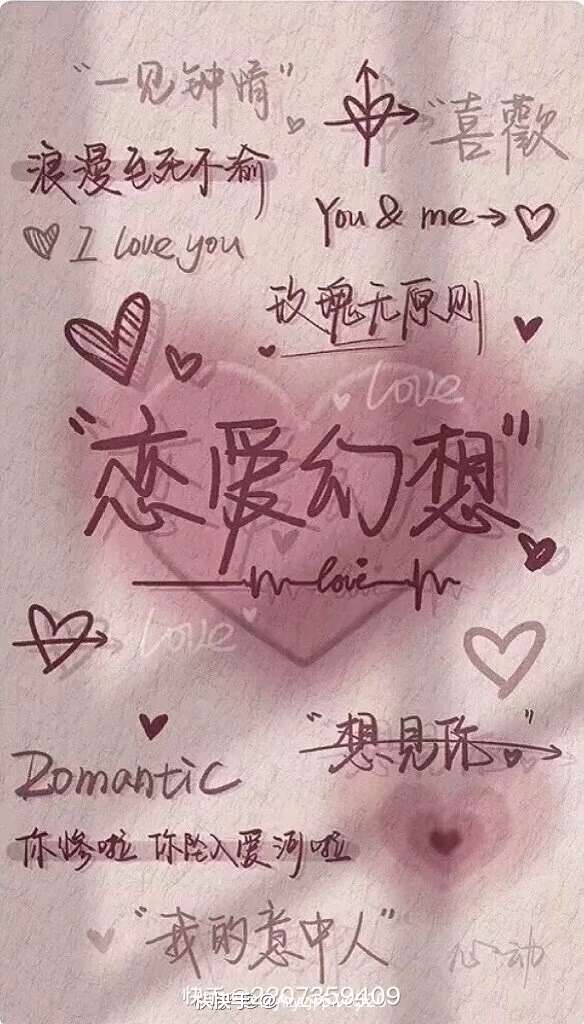 "一见钟情"
"喜歡
浪漫至死不渝
You & me→
I love you
玫瑰无原则
Love
"恋爱幻想"
love
Love
"想見你"
Romantic
你惨啦 你坠入爱河啦
"我的意中人"
心动
快手@2207359409